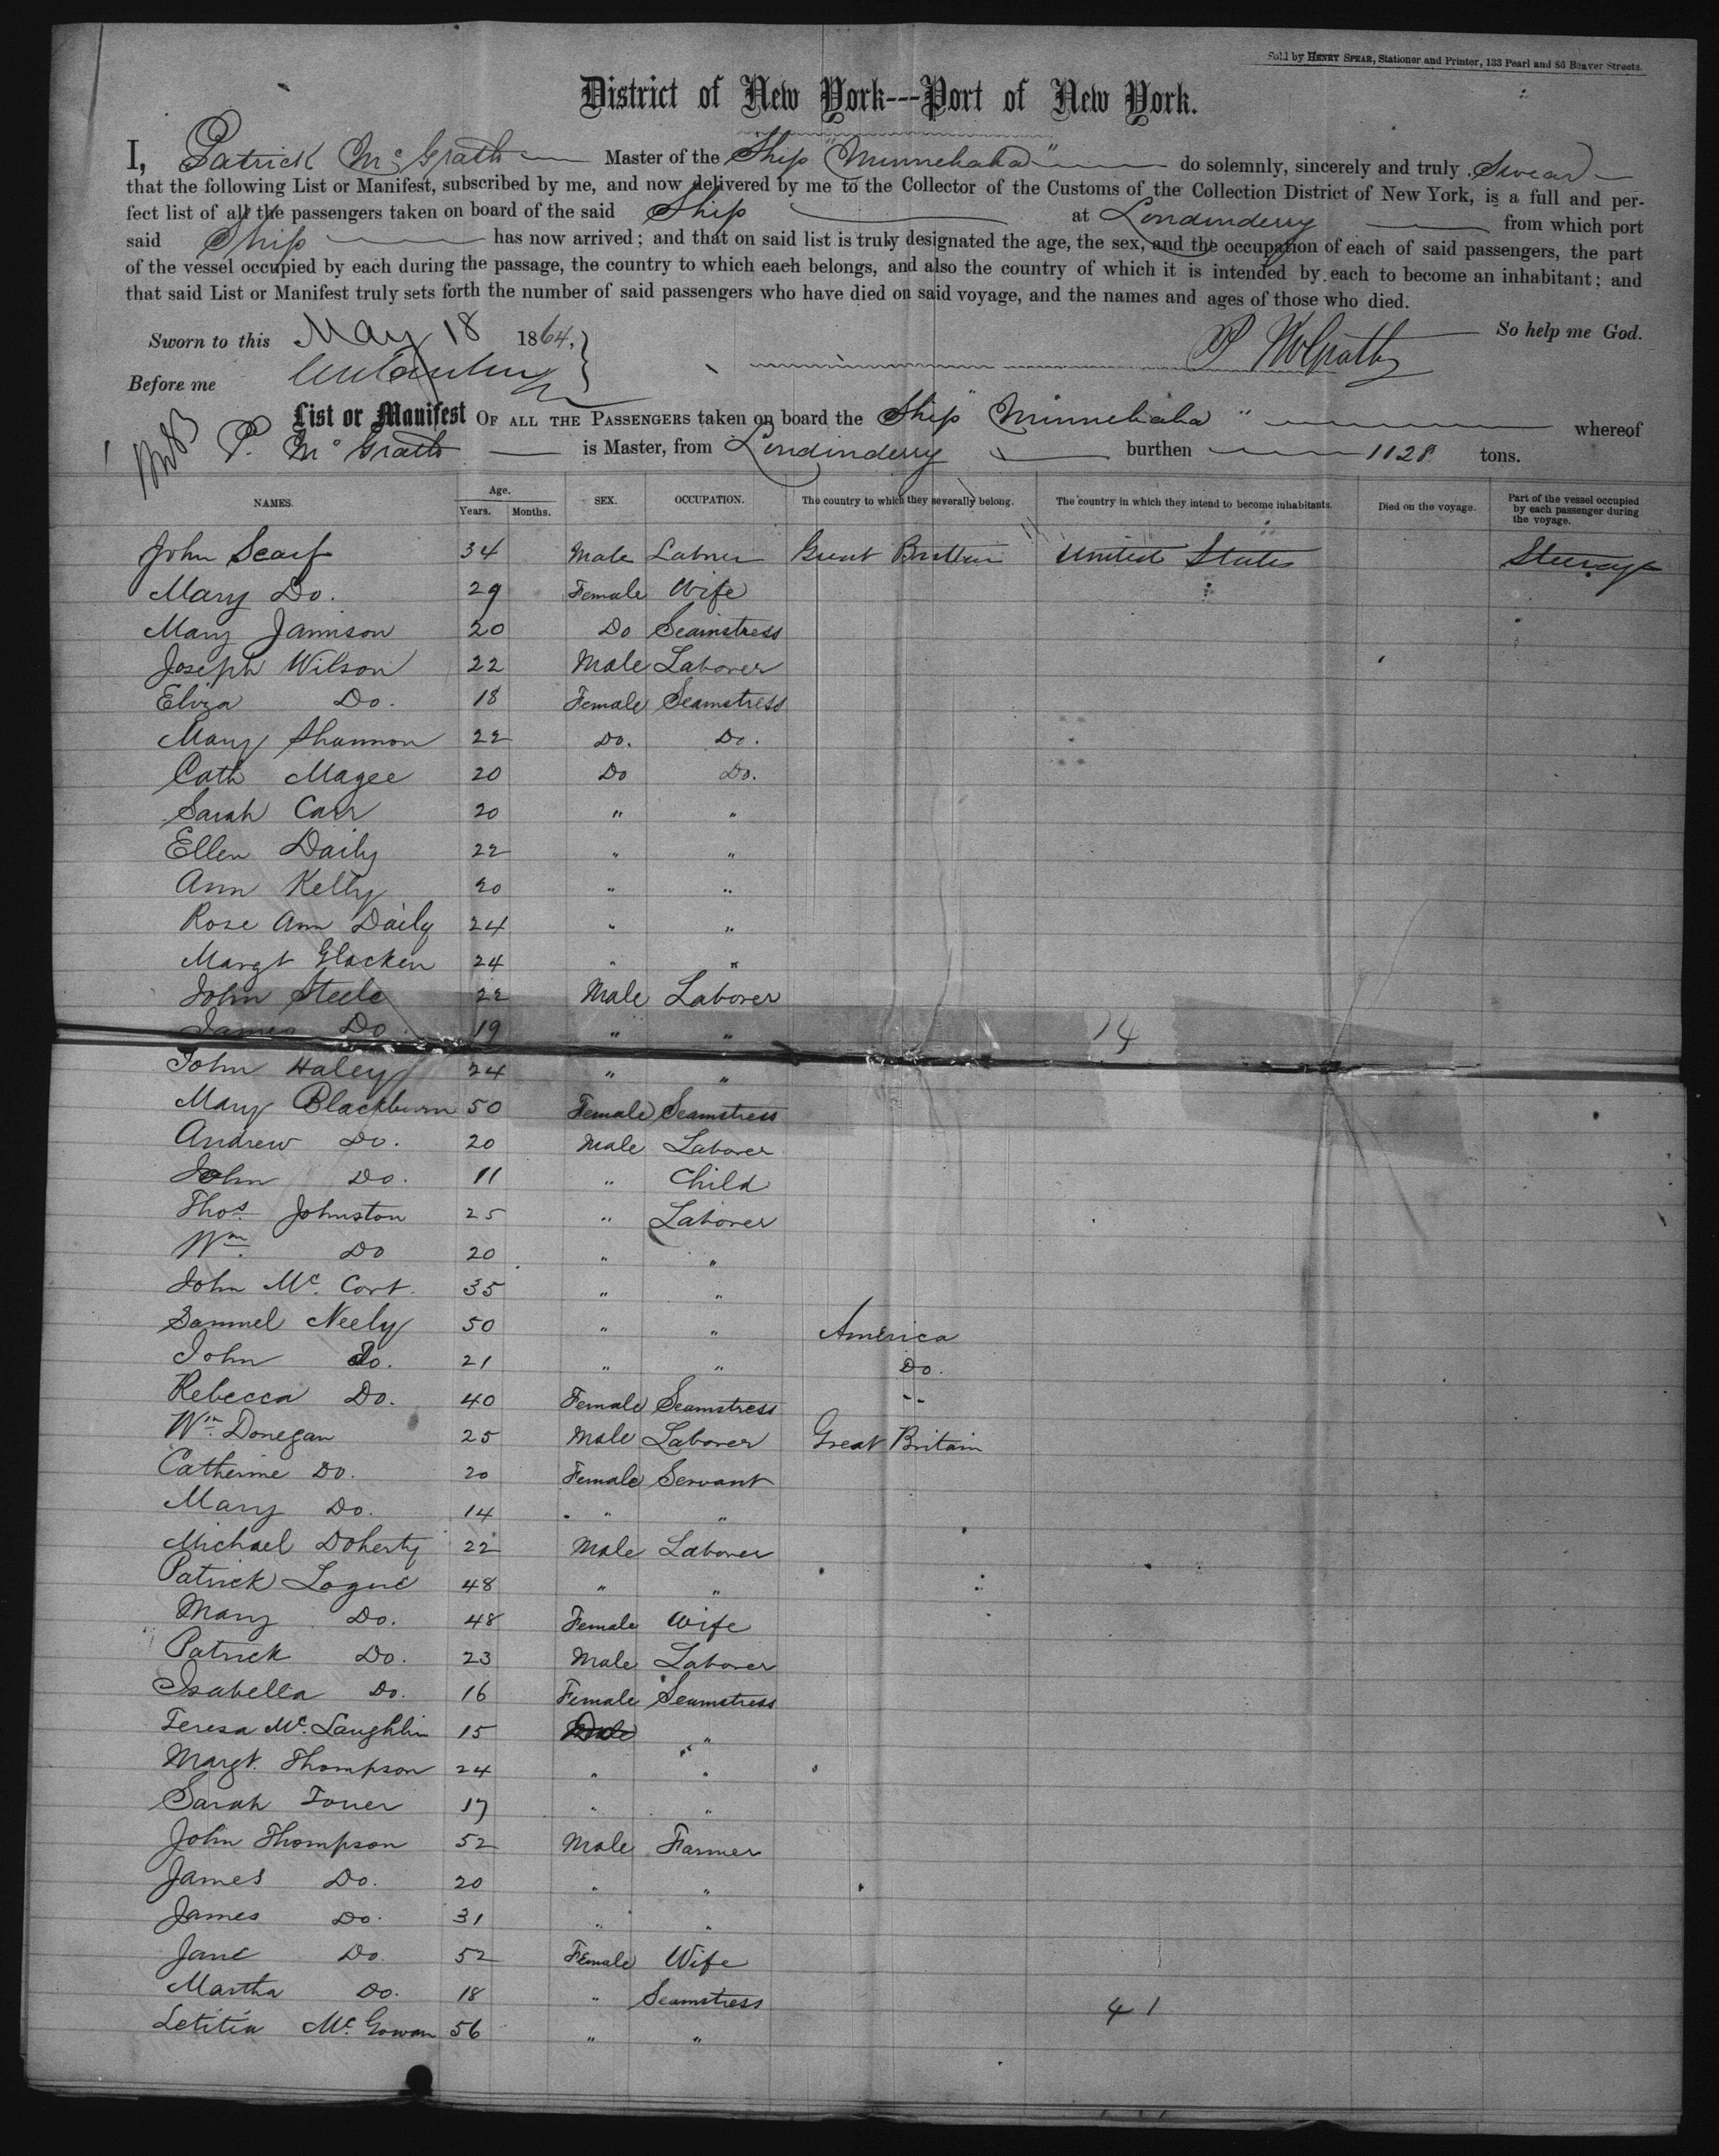 Sold by HENRY SPEAR, Stationer and Printer, 133 Pearl and 86 Beaver Streets.
District of New York---Port of New York.
I, Patrick Mc Grath Master of the Ship "Minnehaha" do solemnly, sincerely and truly Swear
that the following List or Manifest, subscribed by me, and now delivered by me to the Collector of the Customs of the Collection District of New York, is a full and per-
fect list of all the passengers taken on board of the said Ship at Londonderry from which port
said Ship has now arrived; and that on said list is truly designated the age, the sex, and the occupation of each of said passengers, the part
of the vessel occupied by each during the passage, the country to which each belongs, and also the country of which it is intended by each to become an inhabitant; and
that said List or Manifest truly sets forth the number of said passengers who have died on said voyage, and the names and ages of those who died.
Sworn to this May 18 1864, So help me God.
Before me P McGrath
List or Manifest OF ALL THE PASSENGERS taken on board the Ship "Minnehaha" whereof
P. Mc Grath is Master, from Londonderry burthen 1128 tons.
NAMES. Age. Years. Months. SEX. OCCUPATION. The country to which they severally belong. The country in which they intend to become inhabitants. Died on the voyage. Part of the vessel occupied by each passenger during the voyage.
John Scarf 34 Male Laborer Great Brittain United States Steerage
Mary Do. 29 Female Wife
Mary Jamison 20 Do Seamstress
Joseph Wilson 22 Male Laborer
Eliza Do. 18 Female Seamstress
Mary Shannon 22 Do. Do.
Cath Magee 20 Do Do.
Sarah Carr 20 " "
Ellen Daily 22 " "
Ann Kelly 20 " "
Rose Ann Daily 24 " "
Margt Glacken 24 " "
John Steele 22 Male Laborer
James Do. 19 " " 14
John Haley 24 " "
Mary Blackburn 50 Female Seamstress
Andrew Do. 20 Male Laborer
John Do. 11 " Child
Thos. Johnston 25 " Laborer
Wm. Do 20 " "
John Mc. Cort. 35 " "
Samuel Neely 50 " " America
John Do. 21 " " Do.
Rebecca Do. 40 Female Seamstress "
Wm. Donegan 25 Male Laborer Great Britain
Catherine Do. 20 Female Servant
Mary Do. 14 " "
Michael Doherty 22 Male Laborer
Patrick Logue 48 " "
Mary Do. 48 Female Wife
Patrick Do. 23 Male Laborer
Isabella Do. 16 Female Seamstress
Teresa Mc. Laughlin 15 "
Margt. Thompson 24 " "
Sarah Toner 17 " "
John Thompson 52 Male Farmer
James Do. 20 " "
James Do. 31 " "
Jane Do. 52 Female Wife
Martha Do. 18 " Seamstress
Letitia Mc. Gowan 56 " " 41